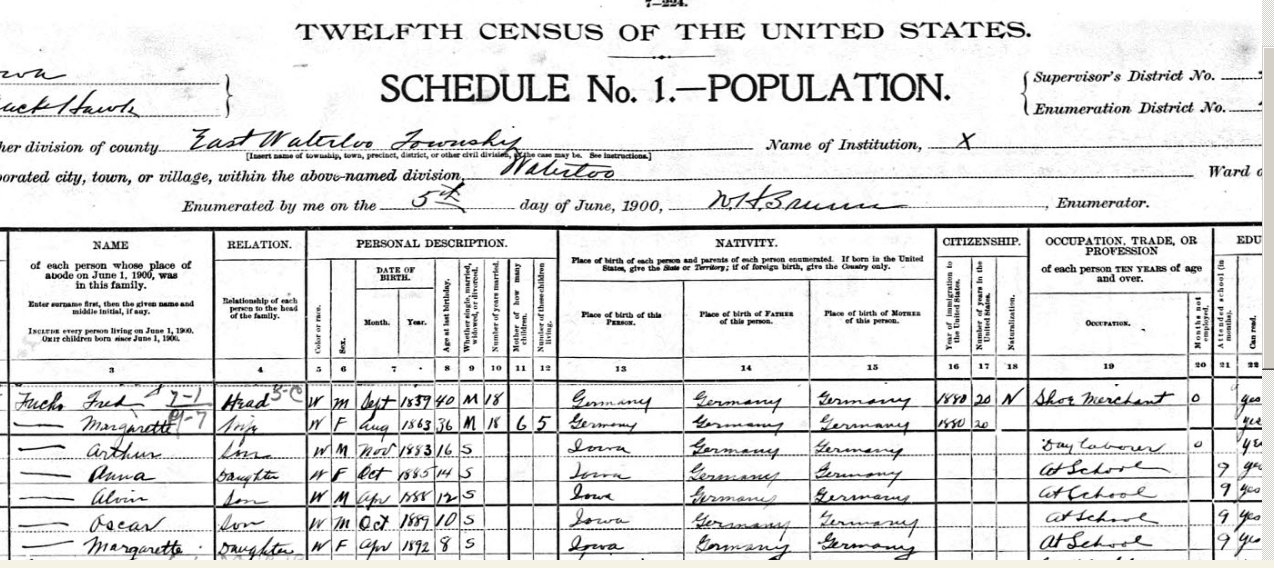 7—224.
TWELFTH CENSUS OF THE UNITED STATES.
SCHEDULE No. 1.—POPULATION.
Supervisor's District No.
Enumeration District No.
uck Hawk
her division of county East Waterloo Township
Name of Institution, X
[Insert name of township, town, precinct, district, or other civil division, as the case may be. See instructions.]
orated city, town, or village, within the above-named division, Waterloo
Ward o
Enumerated by me on the 5th day of June, 1900, , Enumerator.
NAME RELATION. PERSONAL DESCRIPTION. NATIVITY. CITIZENSHIP. OCCUPATION, TRADE, OR PROFESSION EDU
of each person whose place of abode on June 1, 1900, was in this family.
Enter surname first, then the given name and middle initial, if any.
INCLUDE every person living on June 1, 1900. OMIT children born since June 1, 1900.
Relationship of each person to the head of the family.
Color or race.
Sex.
DATE OF BIRTH.
Month. Year.
Age at last birthday.
Whether single, married, widowed, or divorced.
Number of years married.
Mother of how many children.
Number of these children living.
Place of birth of each person and parents of each person enumerated. If born in the United States, give the State or Territory; if of foreign birth, give the Country only.
Place of birth of this PERSON.
Place of birth of FATHER of this person.
Place of birth of MOTHER of this person.
Year of immigration to the United States.
Number of years in the United States.
Naturalization.
of each person TEN YEARS of age and over.
OCCUPATION.
Months not employed.
Attended school (in months).
Can read.
3 4 5 6 7 8 9 10 11 12 13 14 15 16 17 18 19 20 21 22
Fuchs Fred 7-1 Head W M Sept 1859 40 M 18 Germany Germany Germany 1880 20 N Shoe Merchant 0 yes
— Margarett Wife W F Aug 1863 36 M 18 6 5 Germany Germany Germany 1880 20 yes
— Arthur Son W M Nov 1883 16 S Iowa Germany Germany Day laborer 0 ye
— Anna Daughter W F Oct 1885 14 S Iowa Germany Germany At School 9 yes
— Alvin Son W M Apr 1888 12 S Iowa Germany Germany At School 9 yes
— Oscar Son W M Oct 1889 10 S Iowa Germany Germany At School 9 yes
— Margarette Daughter W F Apr 1892 8 S Iowa Germany Germany At School 9 yes